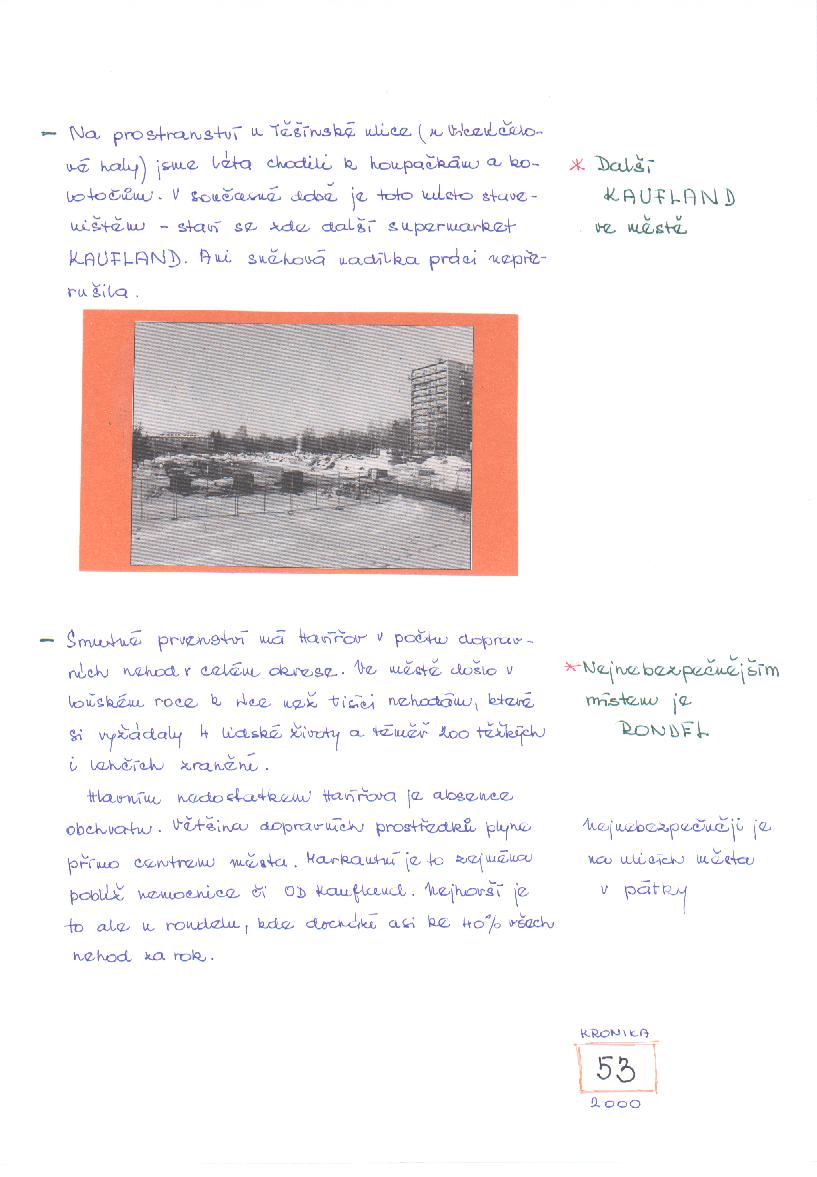 – Na prostranství u Těšínské ulice (u Víceúčelo-
vé haly) jsme léta chodili k houpačkám a ko-
lotočům. V současné době je toto místo stave-
ništěm – staví se zde další supermarket
KAUFLAND. Ani sněhová nadílka práci nepře-
rušila.
* Další
KAUFLAND
ve městě
– Smutné prvenství má Havířov v počtu doprav-
ních nehod v celém okrese. Ve městě došlo v
loňském roce k více než tisíci nehodám, které
si vyžádaly 4 lidské životy a téměř 200 těžkých
i lehčích zranění.
Hlavním nedostatkem Havířova je absence
obchvatu. Většina dopravních prostředků plyne
přímo centrem města. Markantní je to zejména
poblíž nemocnice či OD Kaufland. Nejhorší je
to ale u rondelu, kde dochází asi ke 40% všech
nehod za rok.
* Nejnebezpečnějším
místem je
RONDEL
Nejnebezpečněji je
na ulicích města
v pátky
KRONIKA
53
2000